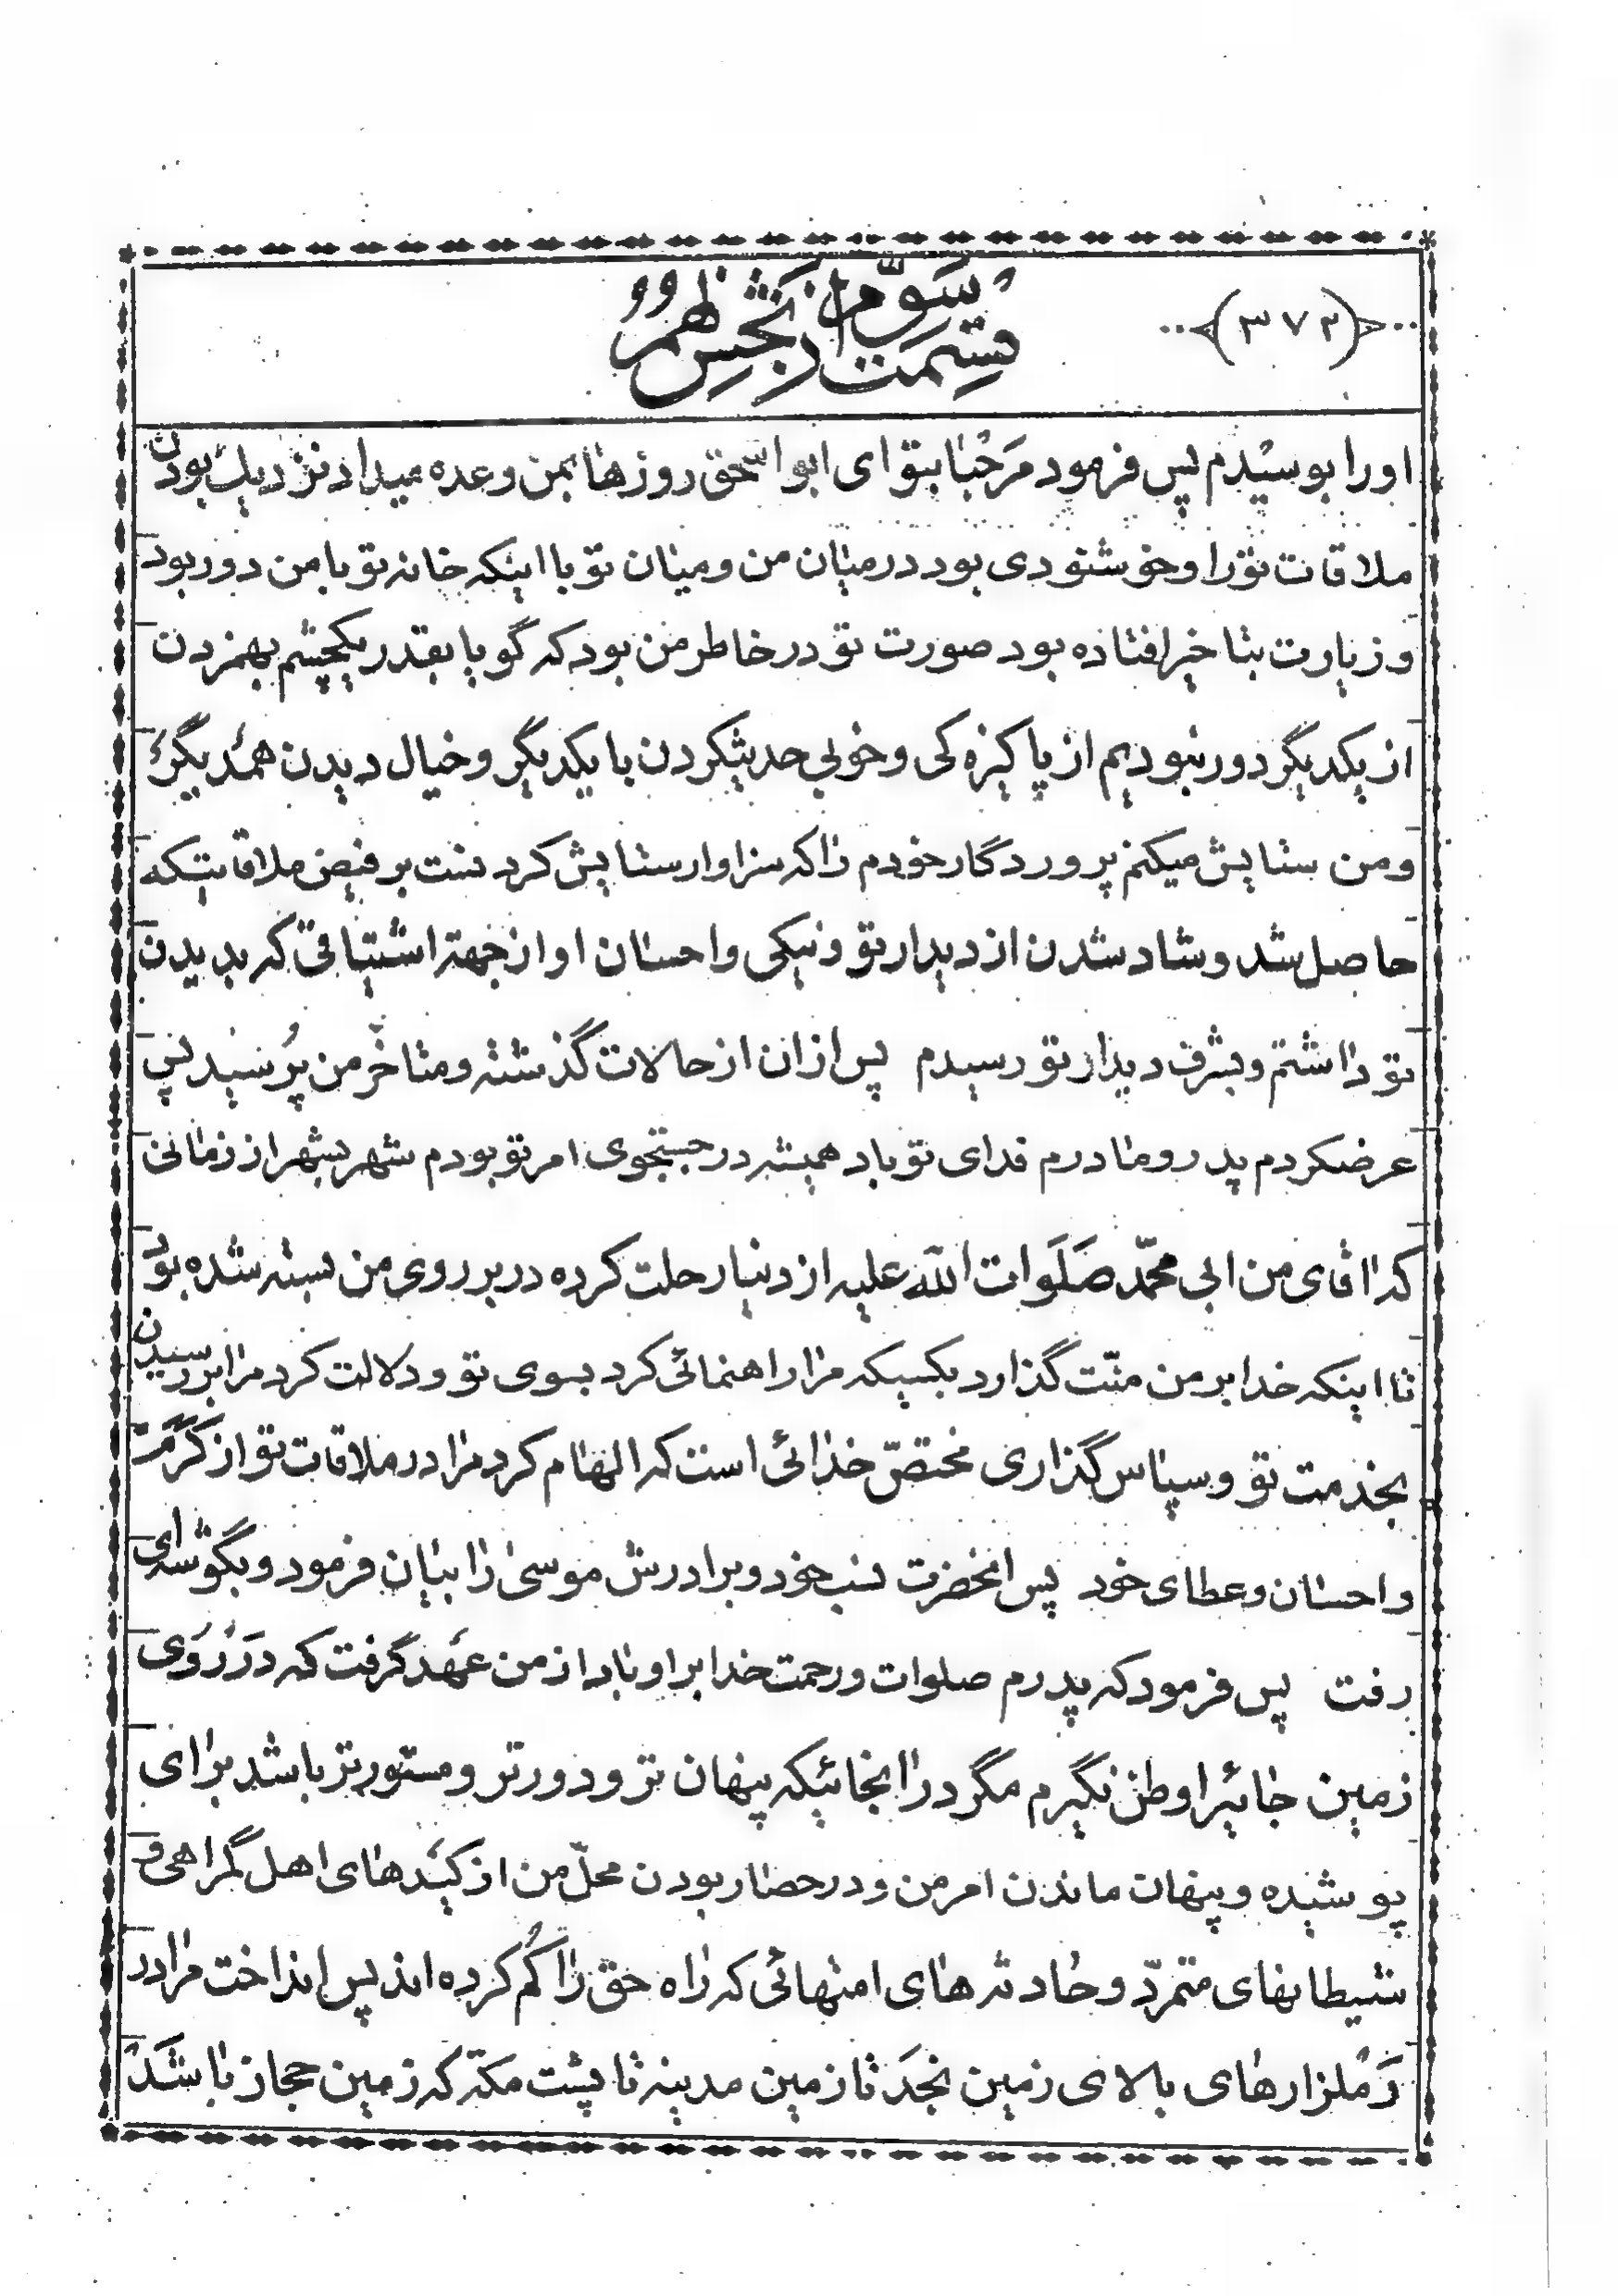 (۳۷۲)
قسمت سوّم از بخش ظهور
او را بوسیدم پس فرمود مرحبا بتو ای ابو اسحق روزها بمن وعده میداد نزدیک بودن
ملاقات تو را و خوشنودی بود در میان من و میان تو با اینکه خانه تو با من دور بود
و زیارت بتاخیر افتاده بود صورت تو در خاطر من بود که گویا بقدر یکچشم بهمزدن
از یکدیگر دور نبودیم از پاکیزه‌کی و خوبی حدیثکردن با یکدیگر و خیال دیدن همدیگر
و من ستایش میکنم پروردگار خودم را که سزاوار ستایش کردنست بر فیض ملاقاتیکه
حاصل شد و شاد شدن از دیدار تو و نیکی و احسان او از جهة اشتیاقی که بدیدن
تو داشتم و بشرف دیدار تو رسیدم پس از ان از حالات گذشته و متاخّر من پرسید پس
عرضکردم پدر و مادرم فدای تو باد همیشه در جستجوی امر تو بودم شهر بشهر از زمانی
که اقای من ابی محمّد صَلَوات الله علیه از دنیا رحلت کرده در بر روی من بسته شده بود
تا اینکه خدا بر من منّت گذارد بکسیکه مرا راهنمائی کرد بسوی تو و دلالت کرد مرا برسیدن
بخدمت تو و سپاس گذاری مختصّ خدائی است که الهام کرد مرا در ملاقات تو از کَرَمت
و احسان و عطای خود پس انحضرت نسب خود و برادرش موسی را بیان فرمود و بگوشه‌ای
رفت پس فرمود که پدرم صلوات و رحمت خدا بر او باد از من عهد گرفت که در روی
زمین جائیرا وطن نگیرم مگر در انجائیکه پنهان تر و دورتر و مستورتر باشد برای
پوشیده و پنهان ماندن امر من و در حصار بودن محلّ من از کیدهای اهل گمراهی و
شیطانهای متمرّد و حادثه های امتهائی که راه حق را گم کرده اند پس انداخت مرا در
رَملزارهای بالای زمین نجد تا زمین مدینه تا پشت مکّه که زمین حجاز باشد